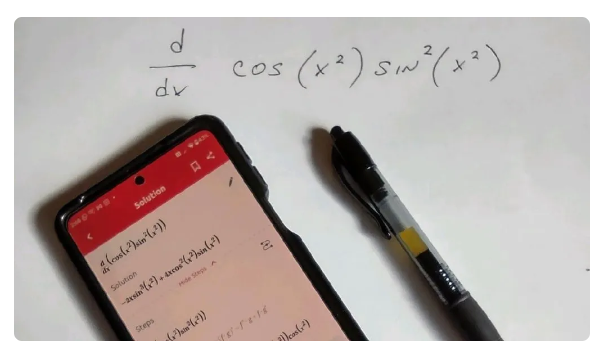 d
dx cos(x²) sin²(x²)
Solution
d/dx(cos(x²)sin²(x²))
Solution
-2xsin³(x²)+4xcos²(x²)sin(x²)
Hide Steps
Steps